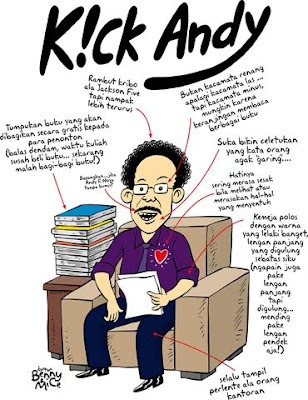 K!CK ANDY
Rambut kribo
ala Jackson Five
tapi nampak
lebih terurus
Bukan kacamata renang
apalagi kacamata las ...
tapi kacamata minus,
mungkin karena
keranjingan membaca
berbagai buku
Tumpukan buku yang akan
dibagikan secara gratis kepada
para penonton
(balas dendam, waktu kuliah
susah beli buku... sekarang
malah bagi-bagi buku!)
Suka bikin celetukan
yang kata orang
agak 'garing'....
Hatinya
sering merasa sesak
bila melihat atau
merasakan hal-hal
yang menyentuh
Kemeja polos
dengan warna
yang lelaki banget,
dengan panjang
yang digulung
sebatas siku
(ngapain juga
pake
lengan
panjang
tapi
digulung...
mending
pake
lengan
pendek
aja!)
selalu tampil
perlente ala orang
kantoran
Benny
Mice